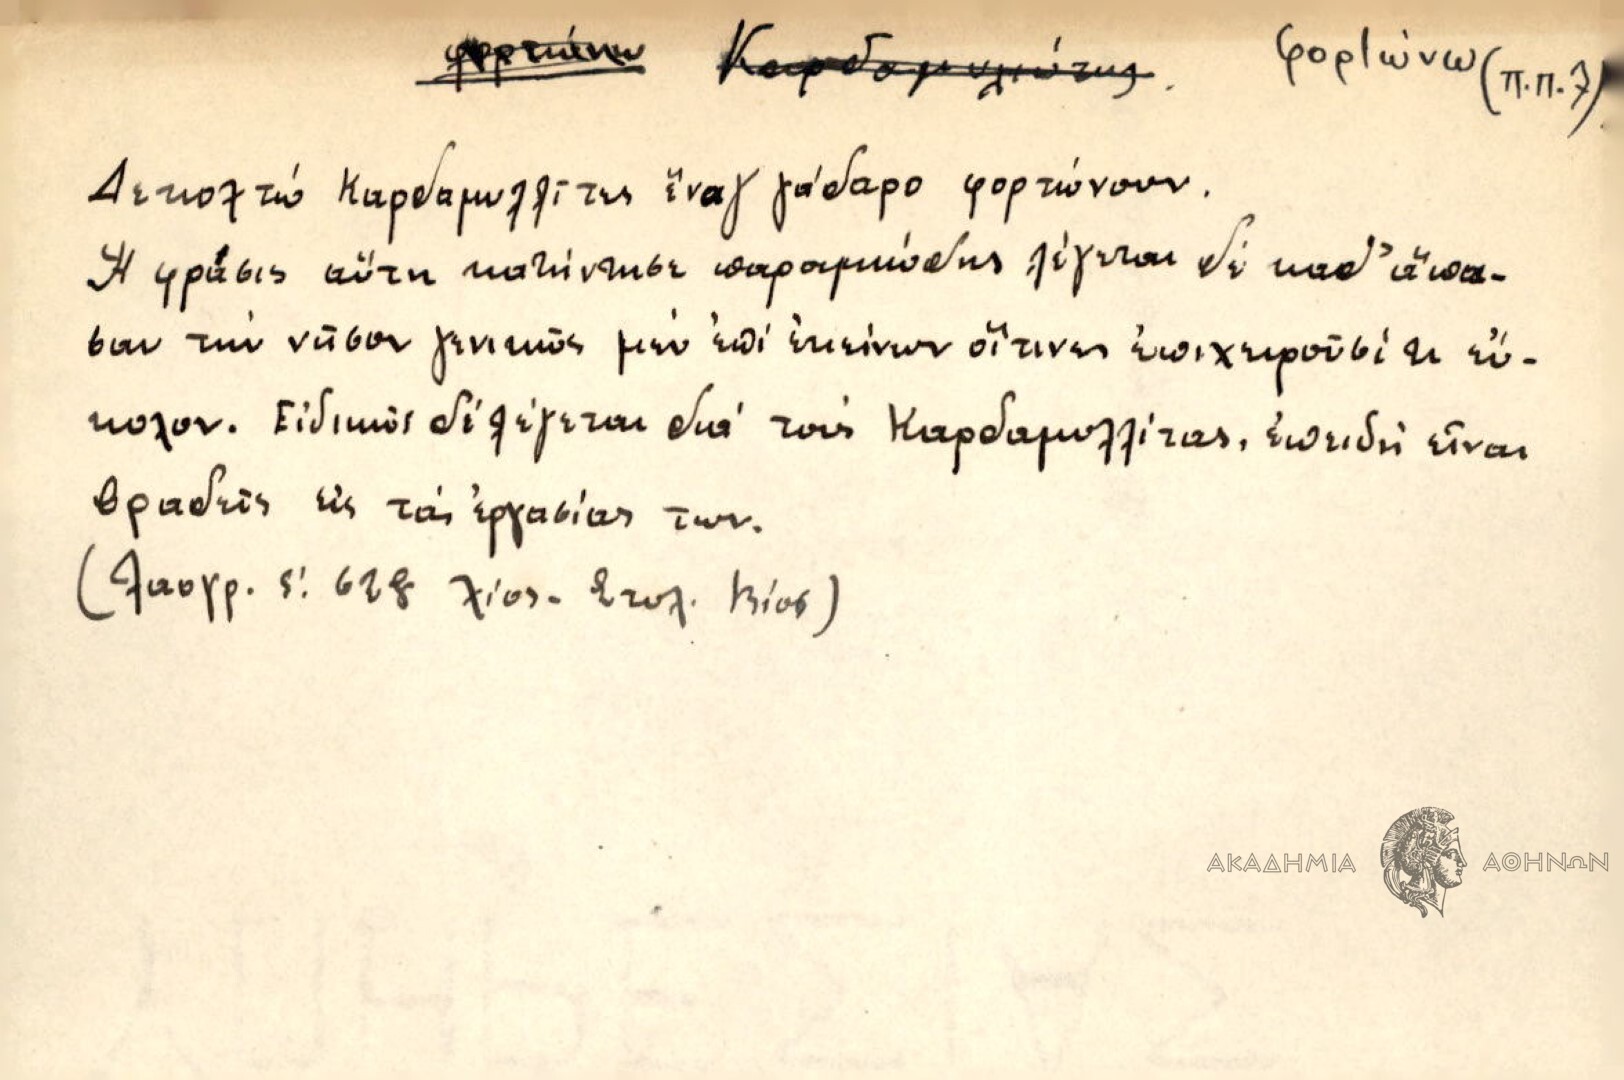 φορτώνω Καρδαμυλιώτης. φορτώνω (π.π.λ)
Δεκοχτώ Καρδαμυλλῖτες ἕναγ γάδαρο φορτώνουν.
Ἡ φράσις αὕτη κατήντησε παροιμιώδης λέγεται δέ καθ' ἅπα-
σαν τήν νῆσον γενικῶς μέν ἐπί ἐκείνων οἵτινες ἐπιχειροῦσί τι εὔ-
κολον. Εἰδικῶς δέ λέγεται διά τούς Καρδαμυλλίτας, ἐπειδή εἶναι
βραδεῖς εἰς τάς ἐργασίας των.
(Λαογρ. Χίος- Στυλ. Βίος)
ΑΚΑΔΗΜΙΑ ΑΘΗΝΩΝ